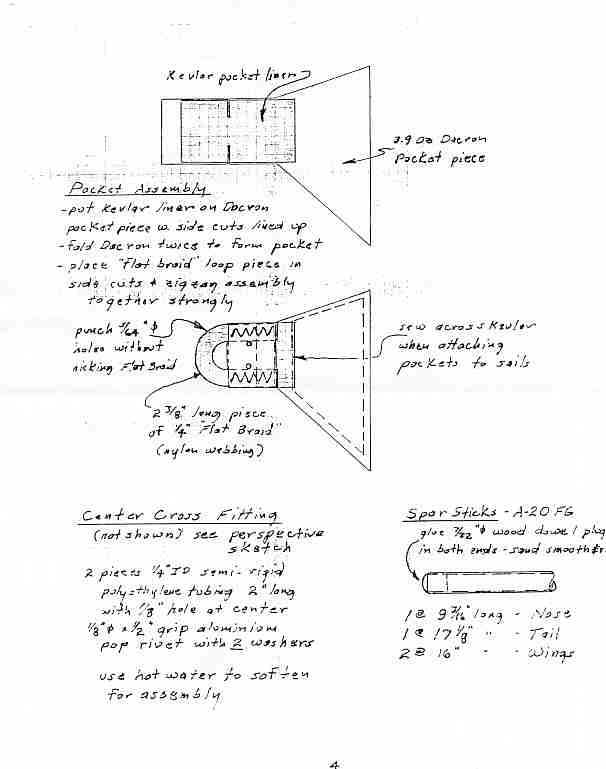 Kevlar pocket liner
3.9 oz Dacron
Pocket piece
Pocket Assembly
-put Kevlar liner on Dacron
pocket piece w. side cuts lined up
-fold Dacron twice to form pocket
-place "Flat braid" loop piece in
side cuts & zigzag assembly
together strongly
punch 5/64"ϕ
holes without
nicking Flat Braid
sew across Kevlar
when attaching
pockets to sails
2 3/8" long piece
of 1/4" "Flat Braid"
(nylon webbing)
Center Cross Fitting
(not shown) see perspective
sketch
2 pieces 1/4" ID semi-rigid
polyethylene tubing 2" long
with 1/8" hole at center
1/8"ϕ x 1/2" grip aluminium
pop rivet with 2 washers
use hot water to soften
for assembly
Spar Sticks - A-20 FG
glue 7/32"ϕ wood dowel plug
in both ends - sand smooth
1 @ 9 3/16" long - Nose
1 @ 17 1/8" " - Tail
2 @ 16" - - Wings
4